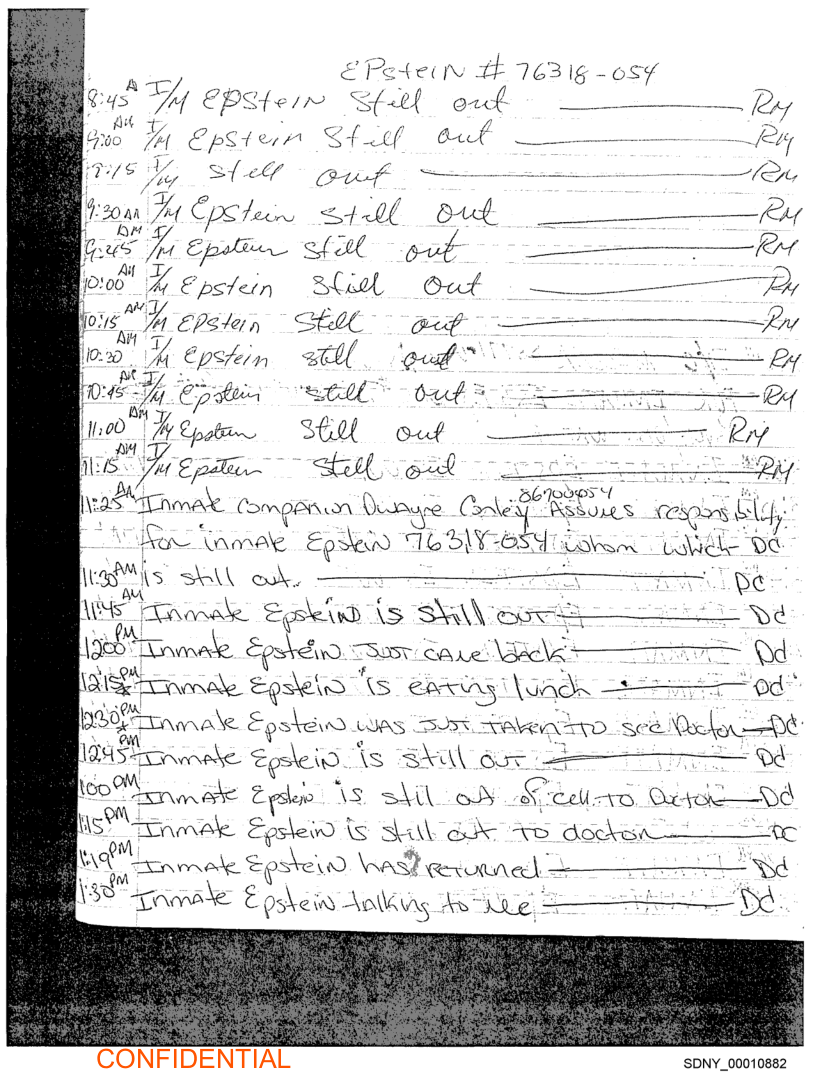 EPsteiN # 76318-054
8:45 A I/M EPStein Still out RM
9:00 AM I/M Epstein Still out RM
9:15 I/M still out RM
9:30 AM I/M Epstein still out RM
9:45 AM I/M Epstein still out RM
10:00 AM I/M Epstein Still out RM
10:15 AM I/M EPstein Still out RM
10:30 AM I/M Epstein still out RM
10:45 AM I/M Epstein still out RM
11:00 AM I/M Epstein Still out RM
11:15 AM I/M Epstein Still out RM
86700054
11:25 AM Inmate Companion Dwayne Conley Assumes responsibility
for inmate Epstein 76318-054 whom which DC
11:30 AM is still out. DC
11:45 AM Inmate Epstein is still out DC
12:00 PM Inmate Epstein Just came back DC
12:15 PM * Inmate Epstein is eating lunch DC
12:30 PM * Inmate Epstein was Just taken to see Doctor DC
12:45 PM Inmate Epstein is still out DC
1:00 PM Inmate Epstein is still out of cell to Doctor DC
1:15 PM Inmate Epstein is still out to doctor DC
1:19 PM Inmate Epstein has returned DC
1:30 PM Inmate Epstein talking to me DC
CONFIDENTIAL
SDNY_00010882